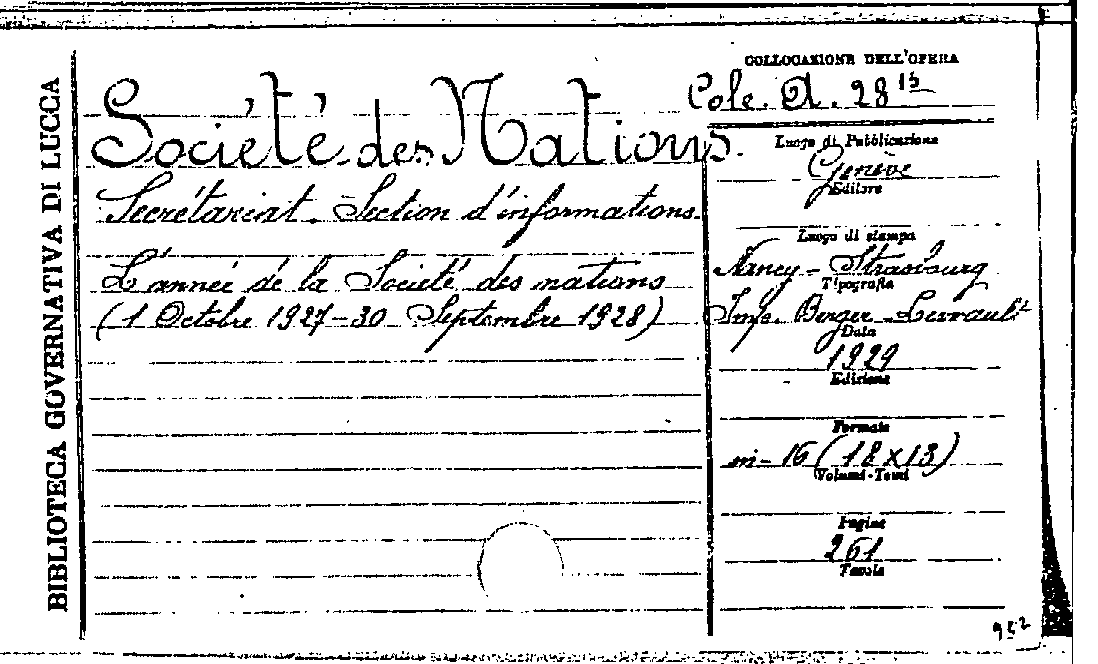 BIBLIOTECA GOVERNATIVA DI LUCCA
Société des Nations.
Secrétariat. Section d'informations.
L'année de la Société des nations
(1 Octobre 1927-30 Septembre 1928)
COLLOCAZIONE DELL'OPERA
Cole. A. 28 15
Luogo di Pubblicazione
Genève
Editore
Luogo di stampa
Nancy - Strasbourg
Tipografia
Imp. Berger-Levrault
Data
1929
Edizione
Formato
in-16 (18x13)
Volumi-Tomi
Pagine
261
Tavole
952